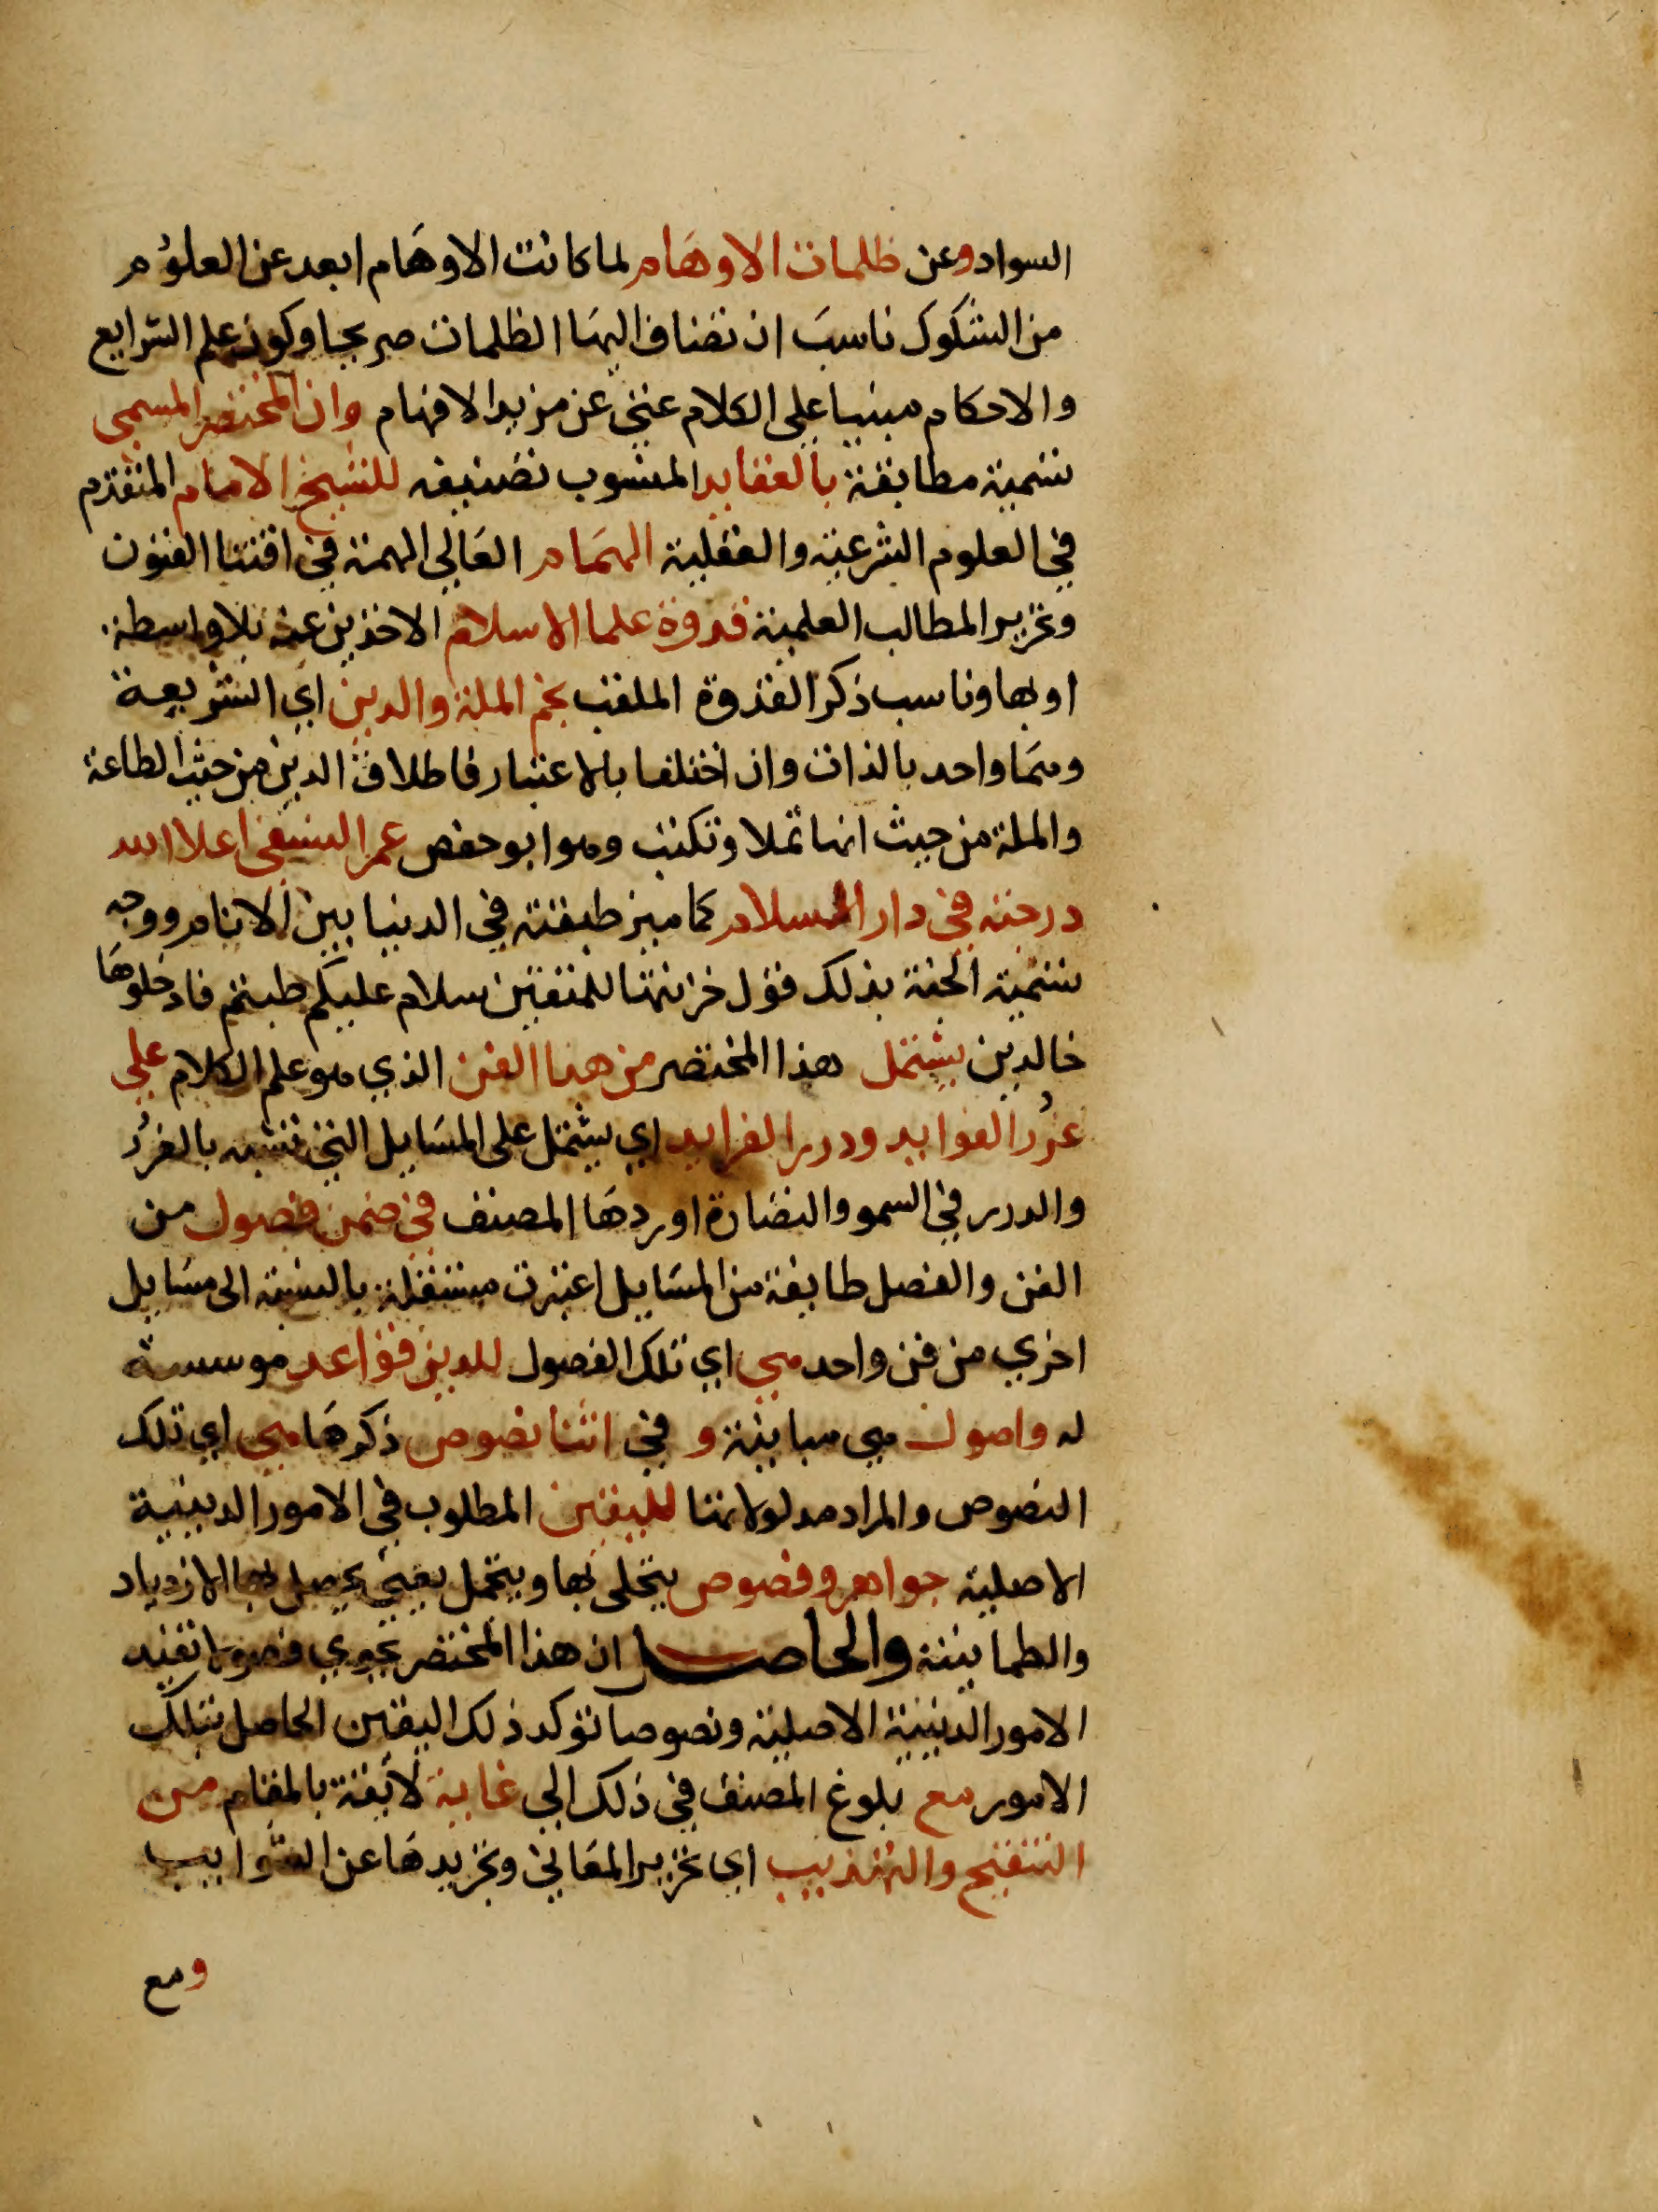 السواد وعن ظلمات الاوهام لما كانت الاوهام ابعد عن العلوم
من الشكوك ناسب ان تضاف اليها الظلمات صريحا وكون علم الشرايع
والاحكام مبنيا على الكلام عني عن مزيد الافهام وان المختصر المسمى
تسمية مطابقة بالعقايد المنسوب تصنيفه للشيخ الامام المتقدم
في العلوم الشرعية والعقلية الهمام العالي الهمة في اقتنا الفنون
وتحرير المطالب العلمية قدوة علما الاسلام الاخذين عنه بلا واسطة
او بها وناسب ذكر القدوة الملقب بنجم الملة والدين اي الشريعة
وهما واحد بالذات وان اختلفا بالاعتبار فاطلاق الدين من حيث الطاعة
والملة من حيث انها تملا وتكتب وهو ابو حفص عمر النسفي اعلا الله
درجته في دار السلام كما ميز طبقته في الدنيا بين الانام ووجه
تسمية الجنة بذلك قول خزنتها للمتقين سلام عليكم طبتم فادخلوها
خالدين يشتمل هذا المختصر من هذا الفن الذي هو علم الكلام على
غرر الفوايد ودرر الفرايد اي يشتمل على المسايل التي تشبه بالغرر
والدرر في السمو والنضارة اوردها المصنف في ضمن فصول من
الفن والفصل طايفة من المسايل اعتبرت مستقلة بالنسبة الى مسايل
اخرى من فن واحد هي اي تلك الفصول للدين قواعد موسسة
له واصول هي مباينة و في اثنا نصوص ذكرها هي اي تلك
النصوص والمراد مدلولاتها لليقين المطلوب في الامور الدينية
الاصلية جواهر وفصوص يتحلى بها ويتجمل يعني يحصل بها الازدياد
والطمانينة والحاصل ان هذا المختصر يحوي فصولا تفيد
الامور الدينية الاصلية ونصوصا توكد ذلك اليقين الحاصل بتلك
الامور مع بلوغ المصنف في ذلك الى غاية لائقة بالمقام من
التنقيح والتهذيب اي تحرير المعاني وتجريدها عن الشوايب
ومع